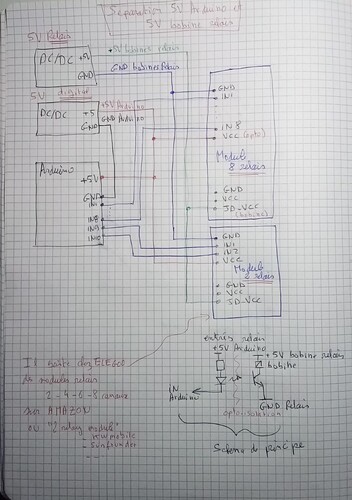 Separation 5V Arduino et
5V bobine relais
5V Relais
DC/DC +5V
GND
+5V bobines relais
GND bobines Relais
5V digital
DC/DC +5
GND
+5V Arduino
GND Arduino
Arduino
+5V
GND
IN1
IN8
IN9
IN10
GND
IN1
IN8
VCC (opto)
Module
8 relais
GND
VCC
JD-VCC
(bobine)
GND
IN1
IN2
VCC
Module
2 relais
GND
VCC
JD-VCC
entrée relais
+5V Arduino
+5V bobine relais
bobine
IN
Arduino
GND Relais
Schema de principe
chez ELEGOO
des modules relais
2 - 4 - 6 - 8 canaux
sur AMAZON
ou "2 relay module"
- sunfounder